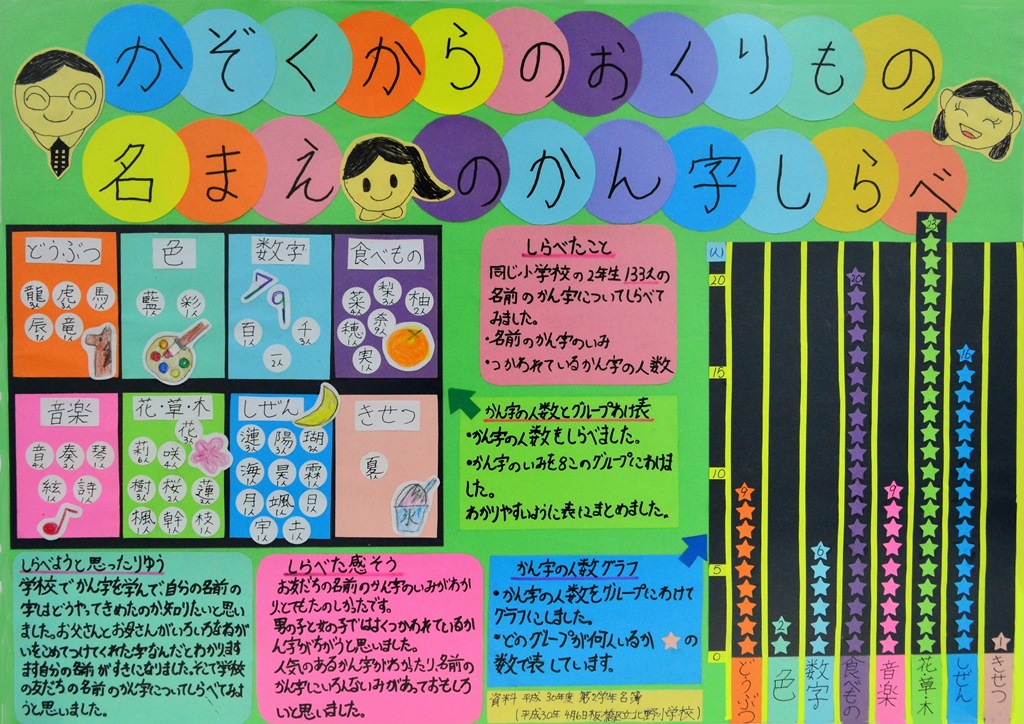 かぞくからのおくりもの
名まえのかん字しらべ
どうぶつ
龍 3人 虎 3人 馬 1人
辰 1人 竜 1人
色
藍 1人 彩 1人
数字
79
百 1人 千 3人
一 2人
食べもの
菜 4人 梨 3人 柚 2人
穂 1人 奈 9人
実 1人
音楽
音 4人 奏 2人 琴 1人
絃 1人 詩 1人
花・草・木
花 3人
莉 6人 咲 4人
樹 3人 桜 2人 蓮 2人
楓 1人 幹 1人 枝 1人
しぜん
漣 1人 陽 3人 瑚 2人
海 1人 昊 1人 霖 1人
月 1人 颯 1人 日 1人
宇 1人 土 1人
きせつ
夏 1人
氷
しらべたこと
同じ小学校の2年生133人の
名前のかん字についてしらべて
みました。
・名前のかん字のいみ
・つかわれているかん字の人数
かん字の人数とグループわけ表
・かん字の人数をしらべました。
・かん字のいみを8このグループにわけ
ました。
わかりやすいように表にまとめました。
しらべようと思ったりゆう
学校でかん字を学んで、自分の名前の
字はどうやってきめたのか知りたいと思い
ました。お父さんとお母さんがいろいろなねが
いをこめてつけてくれた字なんだとわかります
ます自分の名前がすきになりました。そして学校
の友だちの名前のかん字についてしらべてみよ
うと思いました。
しらべた感そう
お友だちの名前のかん字のいみがわか
りとてもたのしかったです。
男の子と女の子ではよくつかわれているか
ん字がちがうと思いました。
人気のあるかん字がわかったり、名前の
かん字にいろんないみがあっておもしろ
いと思いました。
かん字の人数グラフ
・かん字の人数をグループにわけて
グラフにしました。
・どのグループが何人いるか★の
数で表しています。
資料 平成30年度 第2学年名簿
(平成30年4月6日板橋区立北野小学校)
(人)
20
15
10
5
0
9 2 6 20 9 23 16 1
どうぶつ 色 数字 食べもの 音楽 花・草・木 しぜん きせつ